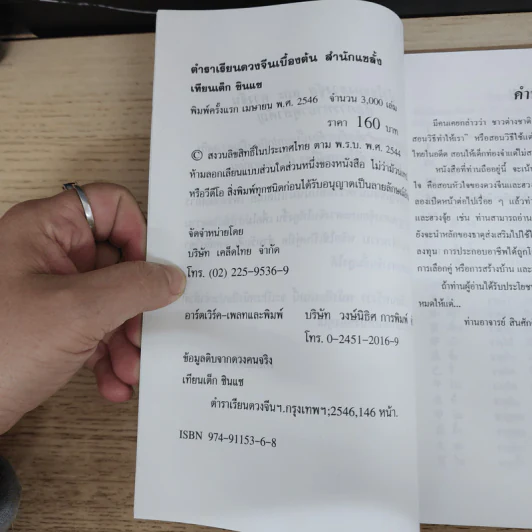 ตำราเรียนดวงจีนเบื้องต้น สำนักแชลั้ง
เทียนเต็ก ซินแซ
พิมพ์ครั้งแรก เมษายน พ.ศ. 2546 จำนวน 3,000 เล่ม
ราคา 160 บาท
© สงวนลิขสิทธิ์ในประเทศไทย ตาม พ.ร.บ. พ.ศ. 2544
ห้ามลอกเลียนแบบส่วนใดส่วนหนึ่งของหนังสือ ไม่ว่า
หรือวีดีโอ สิ่งพิมพ์ทุกชนิดก่อนได้รับอนุญาตเป็นลายลักษณ์
จัดจำหน่ายโดย
บริษัท เคล็ดไทย จำกัด
โทร. (02) 225-9536-9
อาร์ตเวิร์ค-เพลทและพิมพ์ บริษัท วงษ์นิธิศ การพิมพ์
โทร. 0-2451-2016-9
ข้อมูลดิบจากดวงคนจริง
เทียนเต็ก ซินแซ
ตำราเรียนดวงจีนฯ.กรุงเทพฯ;2546,146 หน้า.
ISBN 974-91153-6-8
คำ
มีคนเคยกล่าวว่า ชาวต่างชาติ
สอนวิธีทำให้เรา" หรือสอนวิธีใช้
ไทยในอดีต สอนให้เด็กท่องจำแต่ไม่
หนังสือที่ท่านถืออยู่นี้ จะ
ใจ คือสอนหัวใจของดวงจีนและฮวง
ลองเปิดหน้าต่อไปเรื่อย ๆ แล้ว
และฮวงจุ้ย เช่น ท่านสามารถอ่าน
ยังจะนำหลักของธาตุส่งเสริมไปใช้
ลงทุน การประกอบอาชีพให้ถูก
การเลือกคู่ หรือการสร้างบ้าน และ
ถ้าท่านผู้อ่านได้รับประโยช
หมดให้แด่...
ท่านอาจารย์ สินศัก